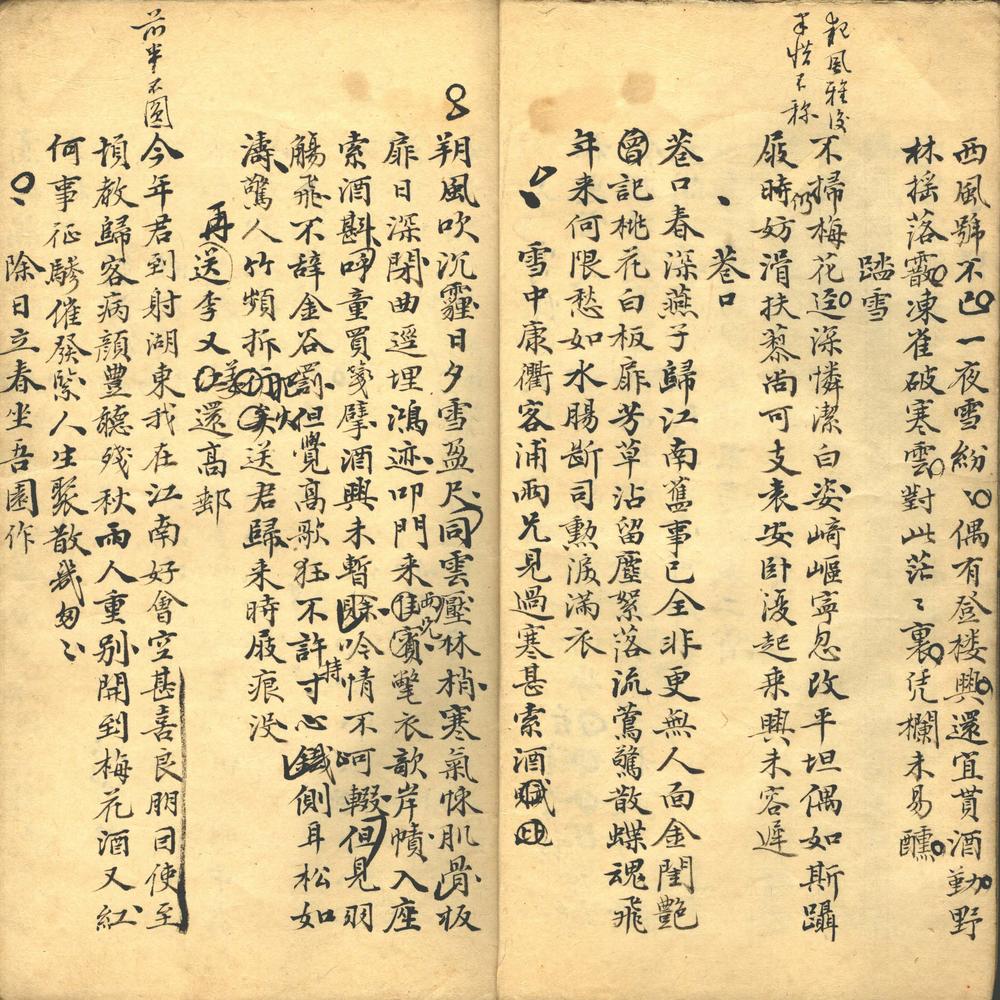 西風號不已一夜雪紛〻偶有登楼興還宜貰酒勤野
林摇落霰凍雀破寒雲對此茫〻裏凭欄未易醺
踏雪
起風雅後
半惜不称
不掃梅花逕深憐潔白姿崎嶇寧忽改平坦偶如斯躡
屐時仍妨滑扶藜尚可支袁安卧漫起乘興未容遲
巷口
巷口春深燕子歸江南舊事已全非更無人面金閨艷
曾記桃花白板扉芳草沾留塵絮落流鶯驚散蝶魂飛
年来何限愁如水腸斷司勲淚滿衣
雪中康衢客浦兩兄見過寒甚索酒賦此
朔風吹沉霾日夕雪盈尺同雲壓林梢寒氣悚肌骨板
扉日深閉曲逕埋鴻迹叩門来佳賓兩兄氅衣歆岸幘入座
索酒斟呼童買箋擘酒興未暫賖吟情不可輟但見羽
觴飛不辞金谷罰但覺高歌狂不許持寸心鐵側耳松如
濤驚人竹頻拆送君歸来時屐痕没
再送李又還高郵
前半不圓
今年君到射湖東我在江南好會空甚喜良朋同使至
頃教歸客病顔豐聽殘秋雨人重别開到梅花酒又紅
何事征驂催發緊人生聚散㦲匆〻
除日立春坐吾園作